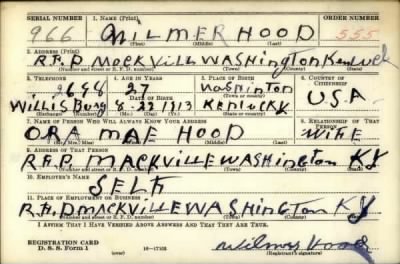 SERIAL NUMBER 1. NAME (Print) ORDER NUMBER
966 WILMER HOOD 555
(First) (Middle) (Last)
2. ADDRESS (Print)
R.F.D MACKVILL WASHINGTON
(Number and street or R. F. D. number) (Town) (County) (State)
3. TELEPHONE 4. AGE IN YEARS 5. PLACE OF BIRTH 6. COUNTRY OF CITIZENSHIP
2698 27 WASHINTON
WILLISBURG 8-22 1913 KENTUCKY U.S.A
(Exchange) (Number) (Mo.) (Day) (Yr.) (State or country)
7. NAME OF PERSON WHO WILL ALWAYS KNOW YOUR ADDRESS 8. RELATIONSHIP OF THAT PERSON
ORA MAE HOOD WIFE
(First) (Middle) (Last)
9. ADDRESS OF THAT PERSON
R.F.D. MACKVILLE WASHINGTON KY
(Number and street or R. F. D. number) (Town) (County) (State)
10. EMPLOYER'S NAME
SELF
11. PLACE OF EMPLOYMENT OR BUSINESS
R.F.D MACKVILLE WASHINGTON KY
(Number and street or R. F. D. number) (Town) (County) (State)
I AFFIRM THAT I HAVE VERIFIED ABOVE ANSWERS AND THAT THEY ARE TRUE.
REGISTRATION CARD
D. S. S. Form 1 16-17105 Wilmer Hood
(Registrant's signature)